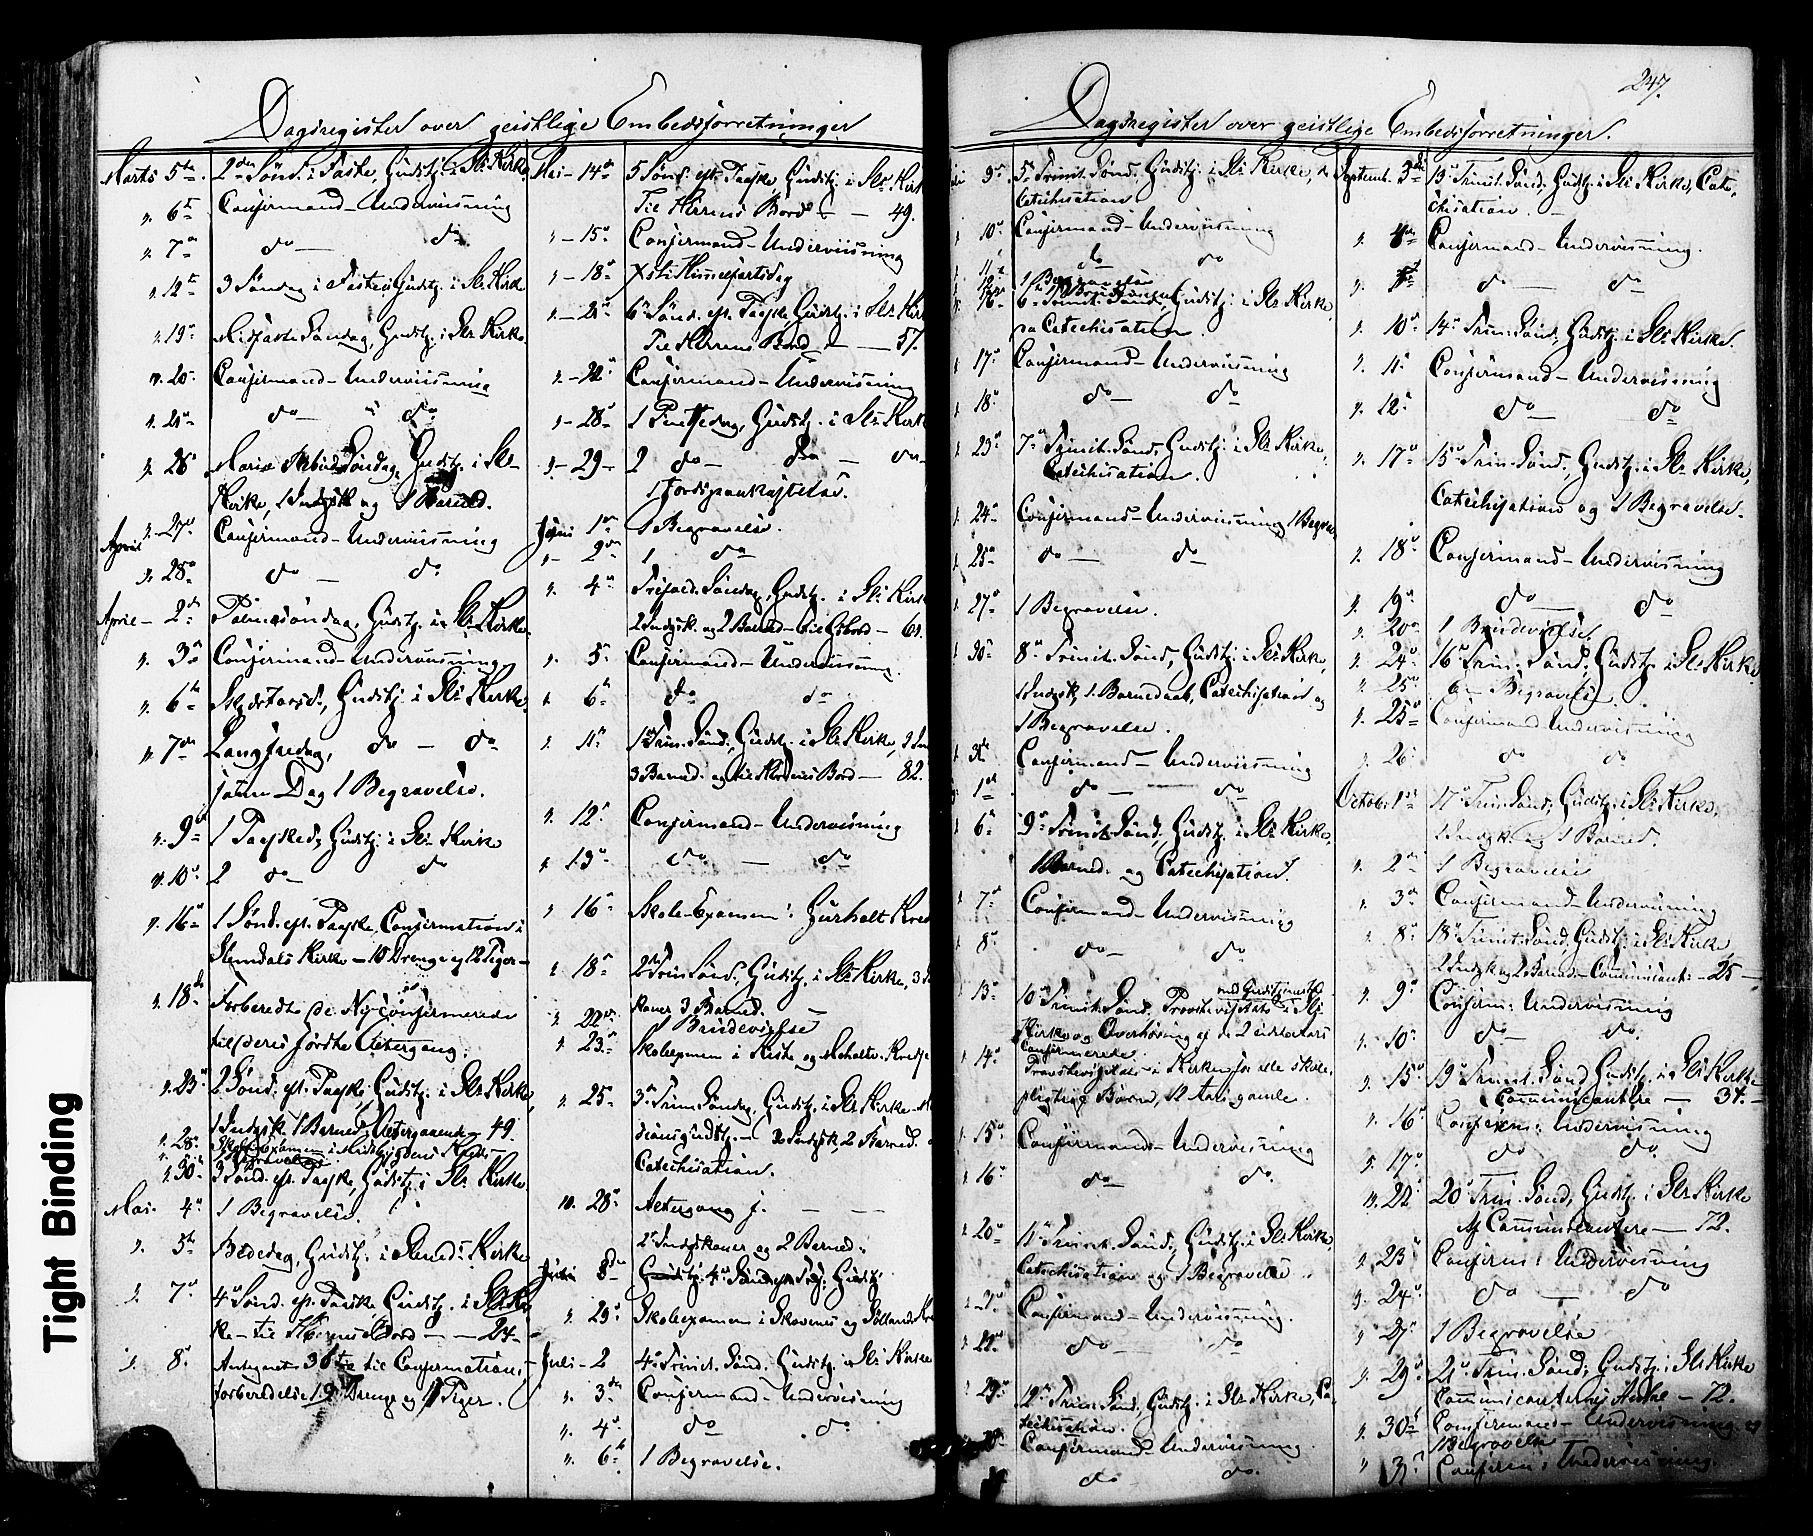 Dagsregister over geistlige Embedsforretninger
Marts 5te 2den Sønd. i Faste, Gudstj. i Sls Kirke
" 6te Confirmand-Underviisning
" 7de do — do
" 12te 3 Søndag i Fasten Gudstj. i Sls Kirke
" 19de Midfaste Søndag, Gudstj. i Sls Kirke
" 20 Confirmand-Underviisning
" 21 do — do
" 26 Mariæ Søndag, Gudstj. i Sls
Kirke, 1 Indgsk og 1 Barned.
" 27 Confirmand-Underviisning
April
" 28 do — do
April — 2de Palmesøndag, Gudstj. i Sls Kirke
" 3de Confirmand-Underviisning
" 6te Skjærtorsd., Gudstj. i Sls Kirke
" 7de Langfredag, do — do
samme Dag 1 Begravelse.
" 9de 1 Paasked., Gudstj. i Sls Kirke
" 10de 2 do — do
" 16de 1 Sønd. eft. Paaske, Confirmation i
Slemdals Kirke — 10 Drenge og 12 Piger —
" 18de Forberedte de Ny-Confirmerede
til deres første Altergang.
" 23de 2 Sønd. eft. Paaske, Gudstj. i Sls Kirke,
1 Indgsk. 1 Barned. Altergaaende — 49.
" 28 Skole-Examen i Kreds —
" 30te 3 Sønd. eft. Paaske, Gudstj. i Sls Kirke
Mai 4de 1 Begravelse.
" 5te Bededag, Gudstj. i Slemd. Kirke
" 7de 4de Sønd. eft. Paaske, Gudstj. i Sls Kir-
ke — til Herrens Bord — 24 —
" 8de Antegnet 36 til Confirmations-
forberedelse 19 Drenge og 17 Piger.
Mai — 14de 5 Sønd. eft. Paaske, Gudstj. i Sls Kirk
Til Herrens Bord — 49.
" — 15de Confirmand-Underviisning
" — 18de Xsti Himmelfartsdag
" — 21de 6te Sønd. eft. Paaske, Gudstj. i Sls Kir
Til Herrens Bord — 57.
" — 22de Confirmand-Underviisning
" — 28de 1 Pintsedag, Gudstj. i Sls Kirk
" — 29 — 2 do — do — do
1 Jordspaakastelse.
Juni 1ste 1 Begravelse.
" — 2den 1 do
" 4de Trefold. Søndag, Gudstj. i Sls Kirk
2 Indgsk. og 2 Barned — til Gsbord — 61.
" 5te Confirmand-Underviisning
" 6te do do
" 11te 1ste Trin. Sønd., Gudstj. i Sls Kirke, 3 In
3 Barned. og til Herrens Bord — 82.
" 12te Confirmand-Underviisning
" 13de do — do
" 16de Skole-Examen i Kred
" 18de 2de Trin. Sønd., Gudstj. i Sls Kirke, 3
koner 3 Barned.
" 22de 1 Brudevielse
" 23de Skoleexamen i og Kredse
" 25de 3de Trin. Søndag, Gudstj. i Sls Kirke
2 Indgsk, 2 Barned.
Catechisation.
" 28de Altergang
2 Indgskoner og 2 Barned.
" 29de Skoleexamen i og
Juli — 2 4de Trinit. Sønd. Gudstj. i Sls Kirke
" 3de Confirmand-Underviisning
" 4de do do
" 6te 1 Begravelse.
247.
Dagsregister over geistlige Embedsforretninger.
9de 5te Trinit. Sønd., Gudstj. i Sls Kirke,
Catechisation
" 10de Confirmand-Underviisning
" 11te do do
" 12te 1 Begravelse
" 16de 6te Trinit. Søndag, Gudstj. i Sls Kirke,
Catechisation.
" 17de Confirmand-Underviisning
" 18de do — do
" 23de 7de Trinit. Sønd., Gudstj. i Sls Kirke,
Catechisation.
" 24de Confirmand-Underviisning, 1 Begrav
" 25de do — do
" 27de 1 Begravelse.
" 30te 8de Trinit. Sønd., Gudstj. i Sls Kirke,
1 Indgsk, 1 Barnedaab, Catechisation og
1 Begravelse.
" 31te Confirmand-Underviisning
1ste do — do
" 6te 9de Trinit. Sønd., Gudstj. i Sls Kirke,
1 Barned. og Catechisation.
" 7de Confirmand-Underviisning
" 8de do — do
" 13de 10de Trinit. Sønd. Provstevisitats med Gudstjeneste i Sls
Kirke og Overhøring af de 2 sidste Aars
Confirmerede.
" 14de Provstevisitats i Kirken for alle skole-
pligtige Børn, 12 Aars gamle.
" 15de Confirmand-Underviisning
" 16de do — do.
" 20de 11te Trinit. Sønd., Gudstj. i Sls Kirke,
Catechisation og 1 Begravelse.
" 21de Confirmand-Underviisning.
" 22de do — do
12te Trin. Sønd., Gudstj. i Sls Kirke, Ca-
techisation.
Confirmand-Underviisning.
do — do.
Septemb. 3de 13de Trinit. Sønd. Gudstj. i Sls Kirke, Cate-
chisation.
" 4de Confirmand-Underviisning.
" 5te do — do
" 10de 14de Trin. Sønd., Gudstj. i Sls Kirke.
" 11te Confirmand-Underviisning
" 12te do — do
" 17de 15de Trin. Sønd., Gudstj. i Sls Kirke,
Catechisation og 1 Begravelse.
" 18de Confirmand-Underviisning
" 19de do — do
" 20de 1 Brudevielse.
" 24de 16de Trin. Sønd., Gudstj. i Sls Kirke,
" 25de Begravelse.
" 25de Confirmand Underviisning
" 26de do do
Octob. 1ste 17de Trin. Sønd., Gudstj. i Sls Kirke,
1 Indgsk. og 1 Barned.
" 2den 1 Begravelse
" 3de Confirmand-Underviisning
" 8de 18de Trinit. Sønd. Gudstj. i Sls Kirke
2 Indgsk og 2 Barned — Communicant: — 25 —
" 9de Confirm: Underviisning
" 10de do — do.
" 15de 19de Trinit. Sønd Gudstj. i Sls Kirke
Communicantere — 34. —
" 16de Confirm: Underviisning
" 17de do do.
" 22de 20de Trin. Sønd, Gudstj. i Sls Kirke
Af Communicantere — 72.
" 23de Confirm: Underviisning
" 24de do — do
" 27de 1 Begravelse
" 29de 21de Trin. Sønd; Gudstj. i Sls Kirke
Communicanternes Antal — 72.
" 30te Confirmand-Underviisning og
1 Begravelse
" 31te Confirm: Underviisning.
Tight Binding